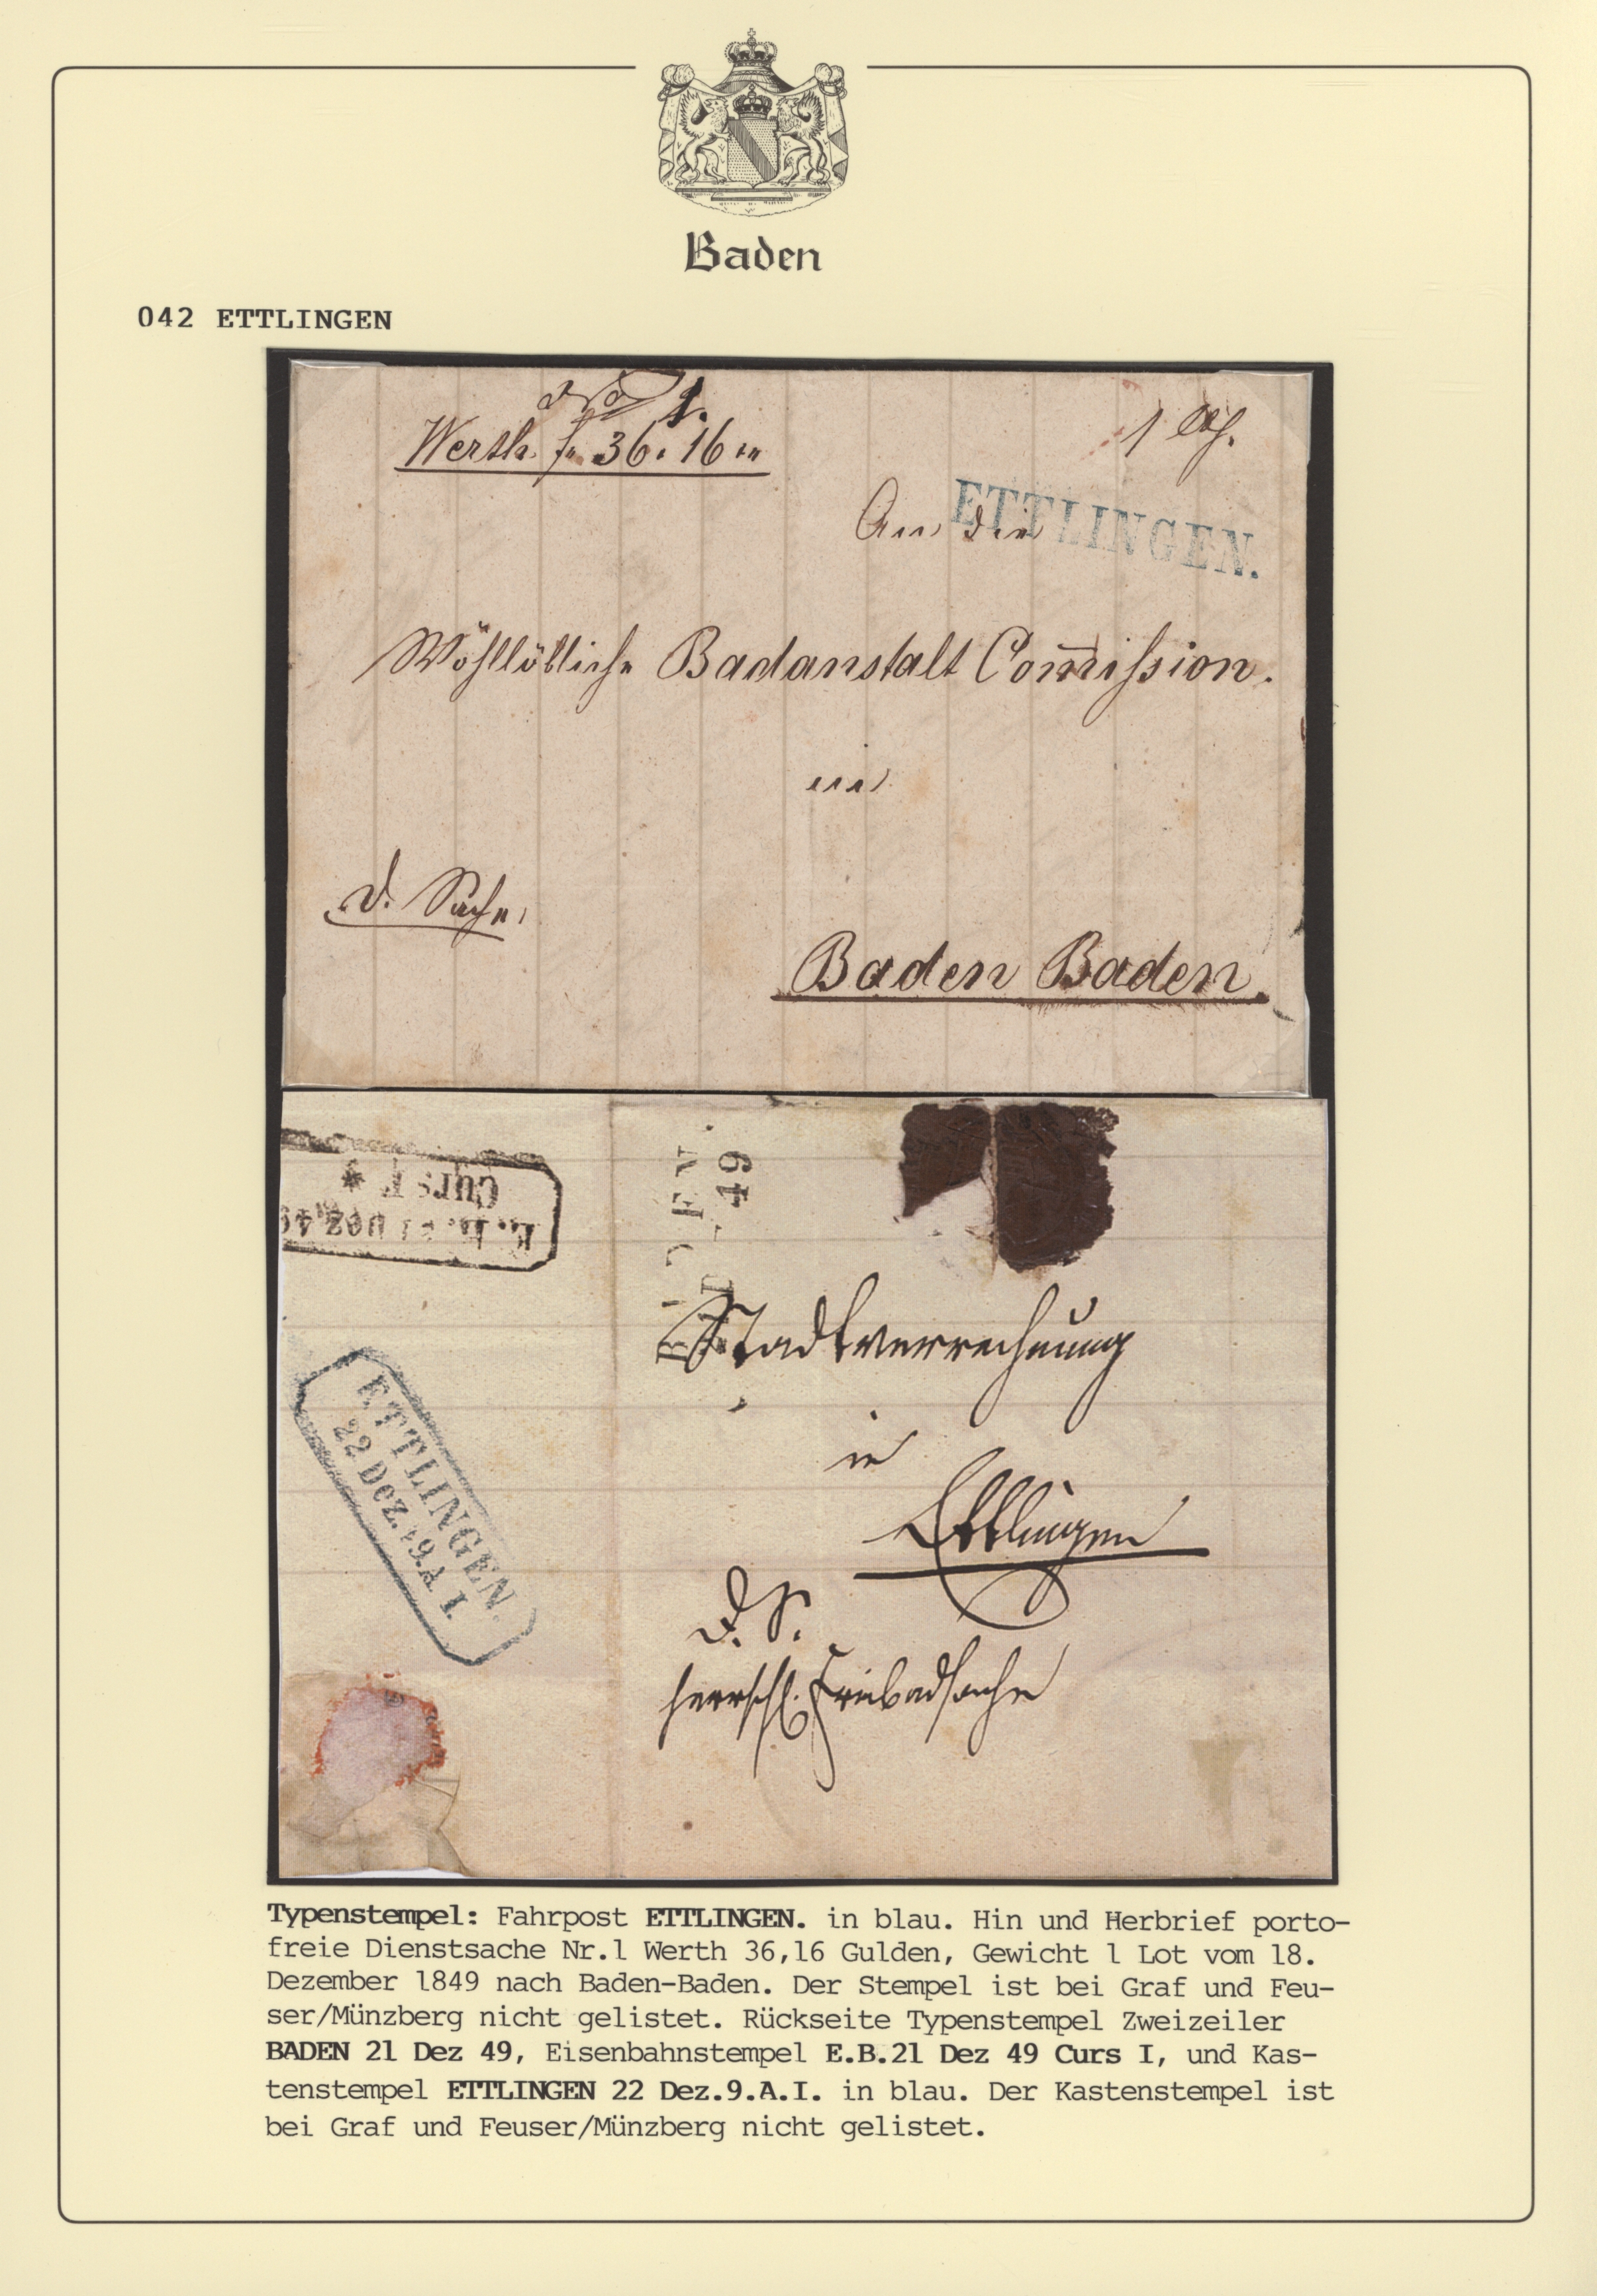 Baden
042 ETTLINGEN
1.
Werth f. 36. 16
ETTLINGEN.
An die
Wöhllöbliche Badanstalt Com̅ission.
in
D. Sache,
Baden Baden.
E. B. 21 Dez 49
Curs I *
BADEN.
49
Stadtverrechnung
in
Ettlingen
ETTLINGEN.
22 Dez. 49. A I.
D. S.
herrschl. Freibadsache
Typenstempel: Fahrpost ETTLINGEN. in blau. Hin und Herbrief porto-
freie Dienstsache Nr.l Werth 36,16 Gulden, Gewicht l Lot vom 18.
Dezember 1849 nach Baden-Baden. Der Stempel ist bei Graf und Feu-
ser/Münzberg nicht gelistet. Rückseite Typenstempel Zweizeiler
BADEN 21 Dez 49, Eisenbahnstempel E.B.21 Dez 49 Curs I, und Kas-
tenstempel ETTLINGEN 22 Dez.9.A.I. in blau. Der Kastenstempel ist
bei Graf und Feuser/Münzberg nicht gelistet.